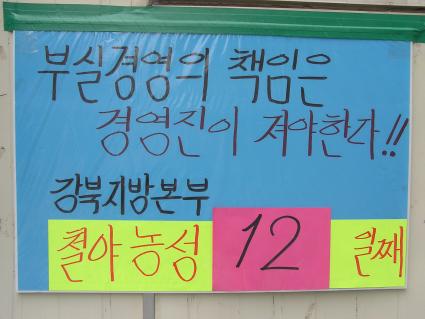 부실경영의 책임은
경영진이 져야한다!!
강북지방본부
철야농성 12 일째